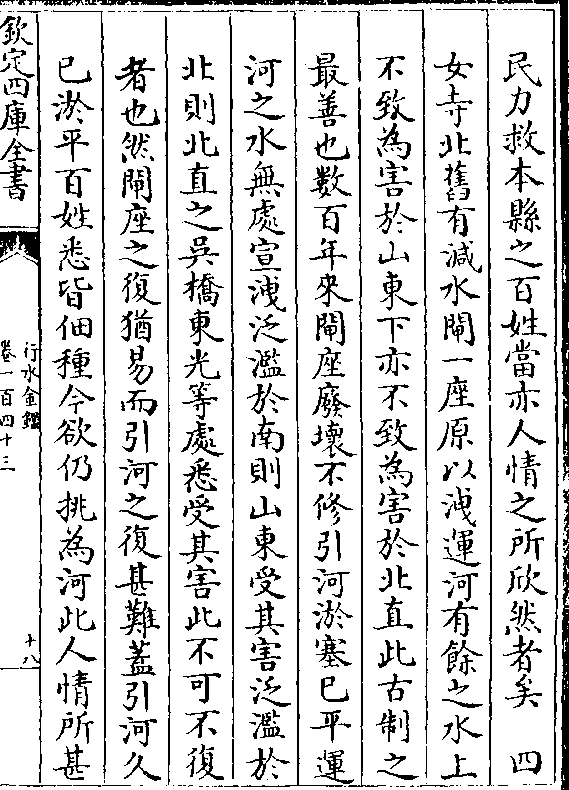 民力救本縣之百姓當亦人情之所欣然者矣　四
女寺北舊有減水閘一座原以洩運河有餘之水上
不致為害於山東下亦不致為害於北直此古制之
最善也數百年來閘座廢壞不修引河淤塞已平運
河之水無處宣洩泛濫於南則山東受其害泛濫於
北則北直之吳橋東光等處悉受其害此不可不復
者也然閘座之復猶易而引河之復甚難蓋引河久
已淤平百姓悉皆佃種今欲仍挑為河此人情所甚
欽定四庫全書
行水金鑑
卷一百四十三
十八